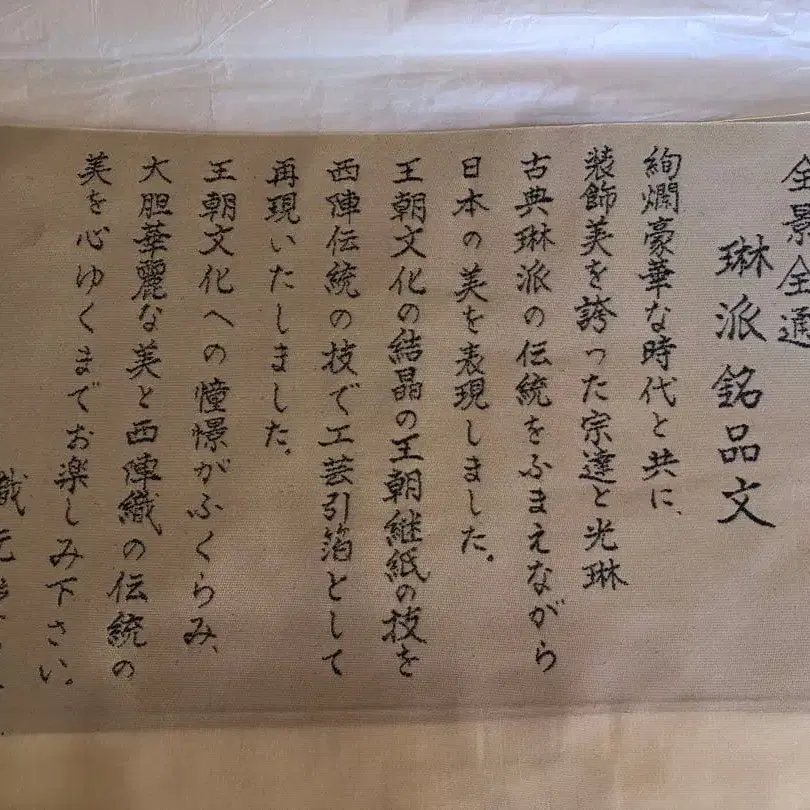 全景全通
琳派銘品文
絢爛豪華な時代と共に、
装飾美を誇った宗達と光琳
古典琳派の伝統をふまえながら
日本の美を表現しました。
王朝文化の結晶の王朝継紙の技を
西陣伝統の技で工芸引箔として
再現いたしました。
王朝文化への憧憬がふくらみ、
大胆華麗な美と西陣織の伝統の
美を心ゆくまでお楽しみ下さい。
織元